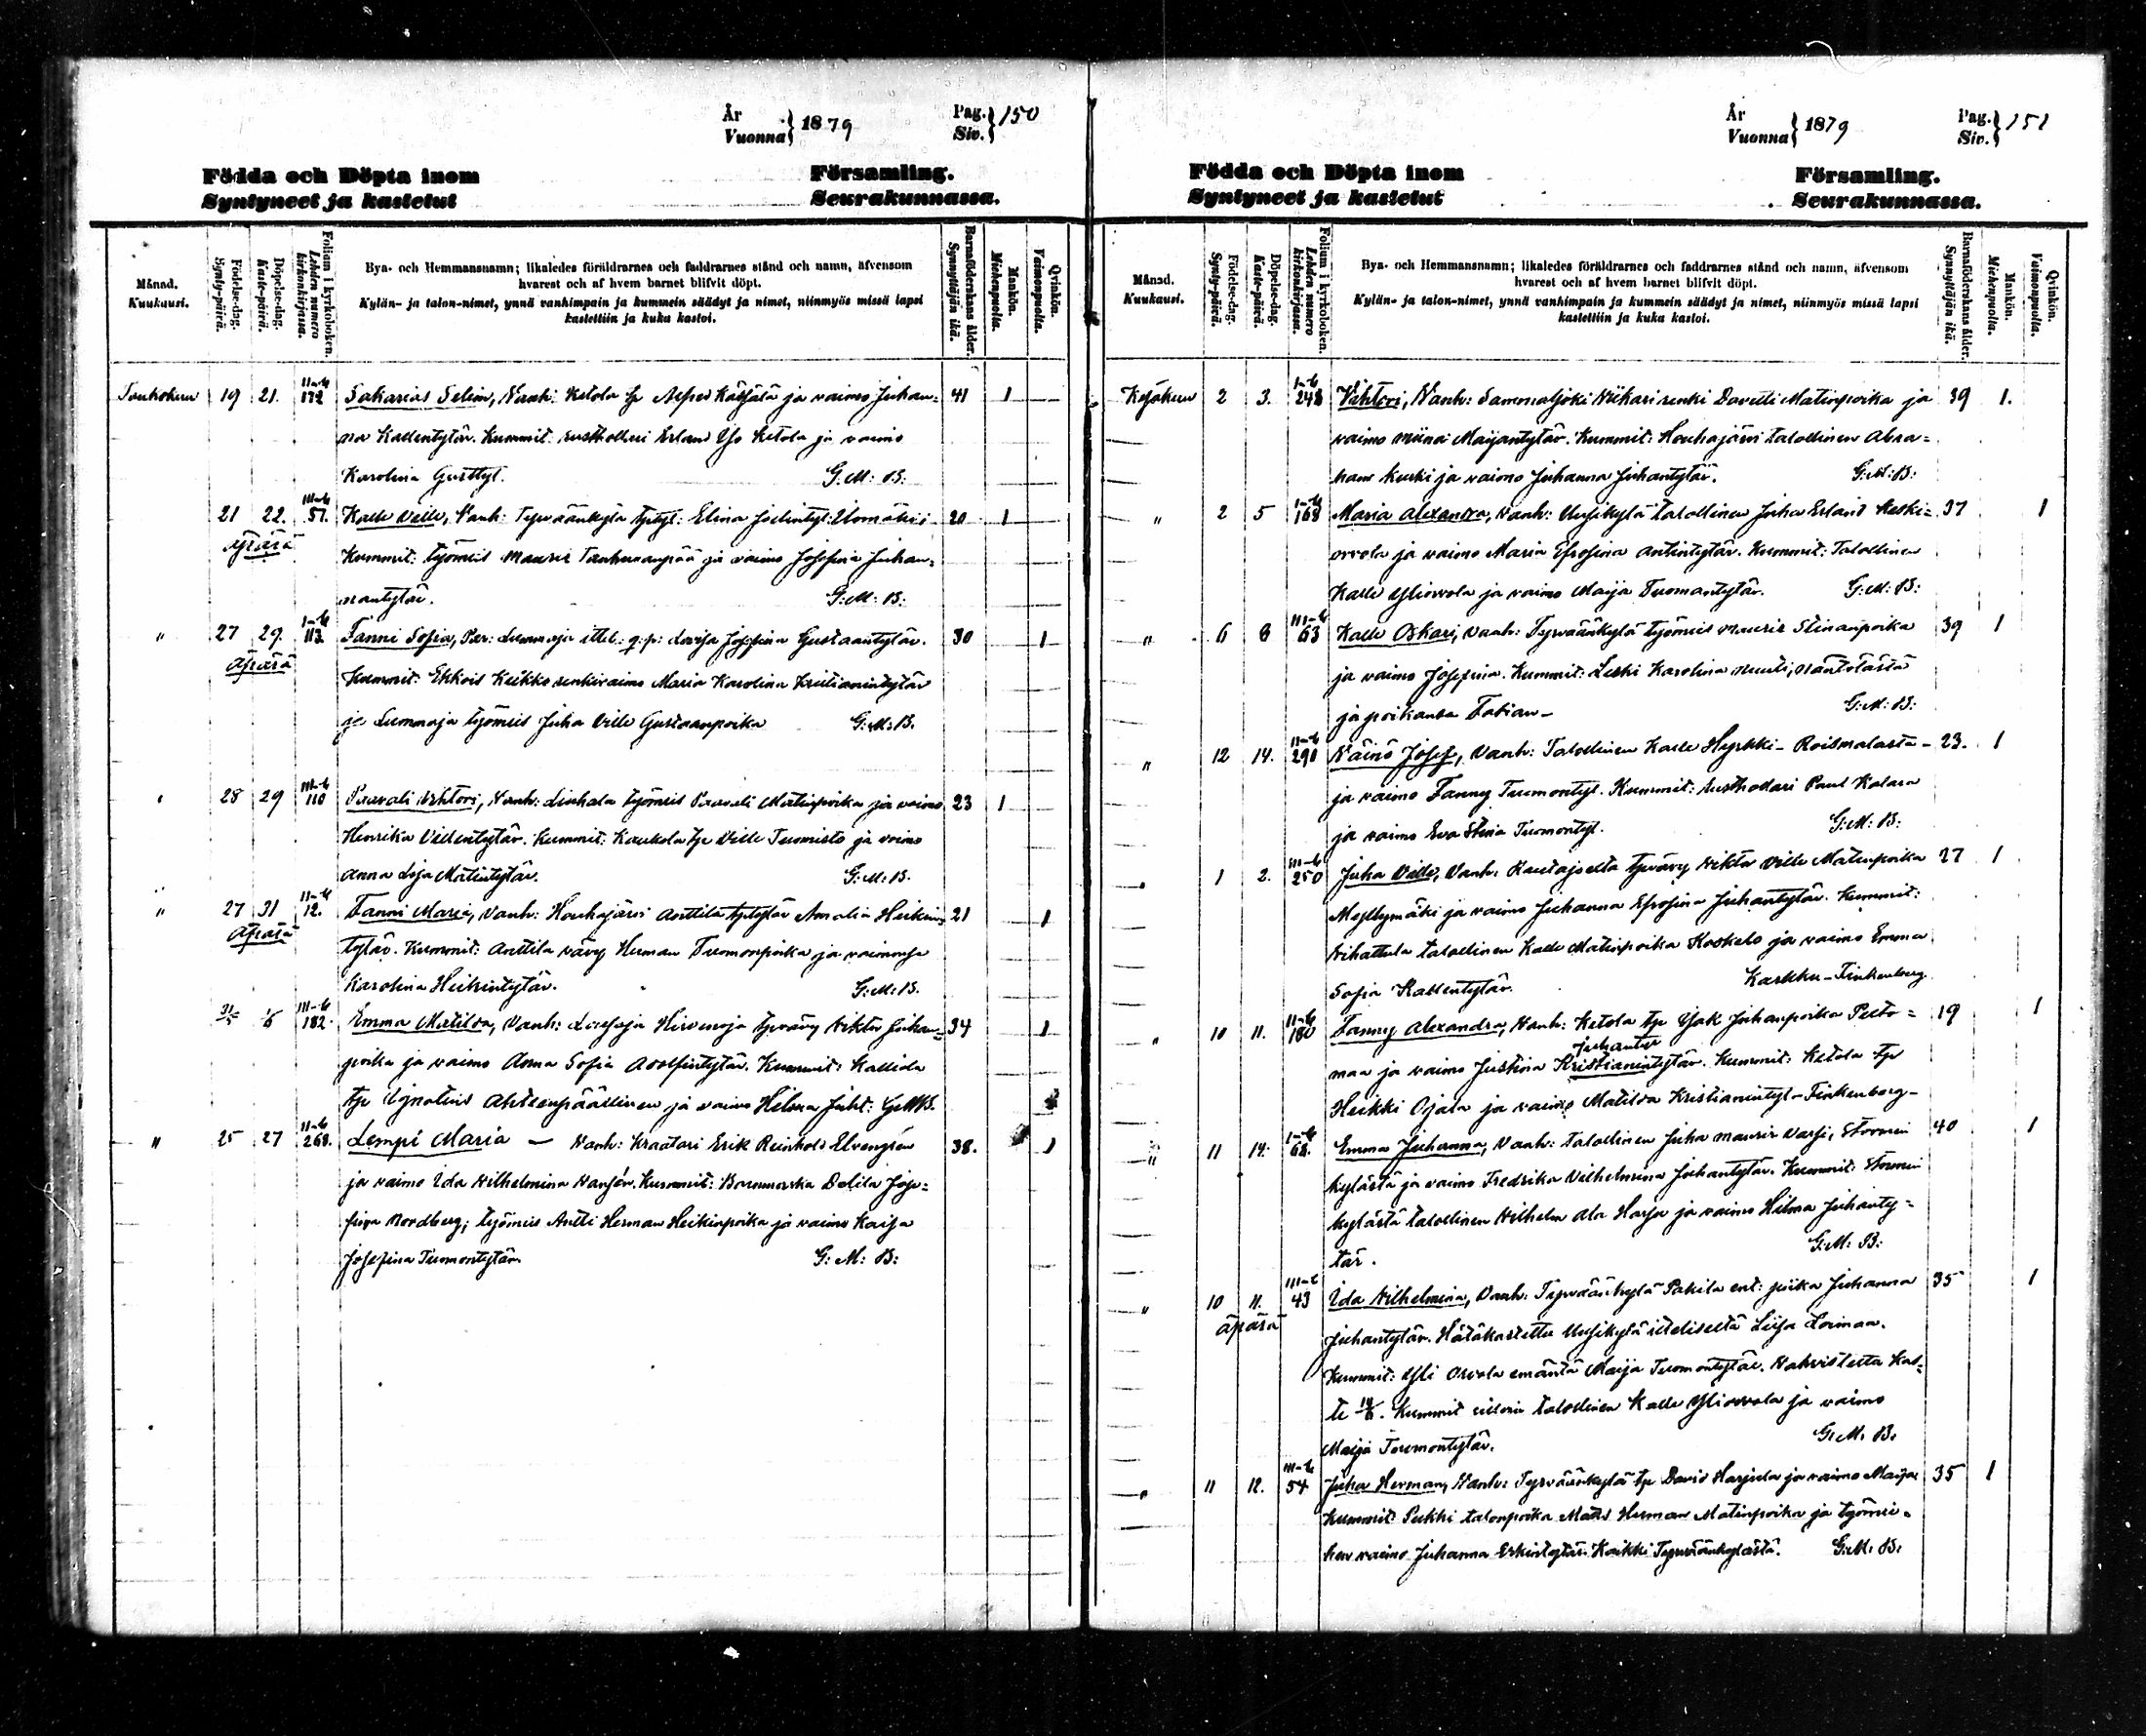 År
Vuonna } 1879
Pag.
Siv. } 150
Födda och Döpta inom Församling.
Syntyneet ja kastetut Seurakunnassa.
Månad.
Kuukausi.
Födelse-dag.
Synty-päivä.
Döpelse-dag.
Kaste-päivä.
Folium i kyrkoboken.
Lehden numero kirkonkirjassa.
Bya- och Hemmansnamn; likaledes föräldrarnes och faddrarnes stånd och namn, äfvensom
hvarest och af hvem barnet blifvit döpt.
Kylän- ja talon-nimet, ynnä vanhimpain ja kummein säädyt ja nimet, niinmyös missä lapsi
kastettiin ja kuka kastoi.
Barnaföderskans ålder.
Synnyttäjän ikä.
Mankön.
Miehenpuolia.
Qvinkön.
Vaimonpuolia.
Toukokuu 19 21. 172 Sakarias Selim, Vanh: Ketola tp Alfred Kärjälä ja vaimo Johan-
na Kallentytär. Kummit: rusthollari Erland Yso Ketola ja vaimo 41 1
Karolina Gusttyt. G: M: B:
21 22. 51. Kalle Ville, Vanh: Tyrväänkylä tptyt: Elina 20 1
äpärä Kummit: työmies Maurits ja vaimo Josefina Juhan-
nantytär. G: M: B:
" 27 29. 113 Fanni Sofia, Lummaja ittel: Lovisa Josefina Gustaantytär. 30 1
äpärä Kummit: Ekkois Keikko renkivaimo Maria Karolina Kristianintytär
ja Lummaja työmies Juha Ville Gustaanpoika G: M: B.
28 29 110 Paavali Vihtori, Vanh: Liuhala työmies Paavali Matinpoika ja vaimo 23 1
Henrika Villentytär. Kummit: Kaukola tp Ville Tuomisto ja vaimo
Anna Liisa Matintytär. G: M: B.
" 27 31 12. Fanni Maria, Vanh: Houhajärvi Anttila tptytär Amalia Heikin- 21 1
äpärä tytär. Kummit: Anttila vävy Herman Tuomonpoika ja vaimonsa
Karolina Heikintytär. G: M: B.
31/5 1/6 182. Emma Matilda, Vanh: Hirvenoja tpvävy Viktor Juhan- 34 1
poika ja vaimo Anna Sofia Adolfintytär. Kummit: Kalliala
tp Ignatius ja vaimo Hilma Juht: G M B.
" 25 27 268. Lempi Maria — Vanh: Kraatari Erik Reinhold Elvengrén 38. 1
ja vaimo Ida Vilhelmina Hansén. Kummit: Barnmorska Delila Jose-
fina Nordberg; työmies Antti Herman Heikinpoika ja vaimo Kaisa
Josefina Tuomontytär. G: M: B:
År
Vuonna } 1879
Pag.
Siv. } 151
Födda och Döpta inom Församling.
Syntyneet ja kastetut Seurakunnassa.
Månad.
Kuukausi.
Födelse-dag.
Synty-päivä.
Döpelse-dag.
Kaste-päivä.
Folium i kyrkoboken.
Lehden numero kirkonkirjassa.
Bya- och Hemmansnamn; likaledes föräldrarnes och faddrarnes stånd och namn, äfvensom
hvarest och af hvem barnet blifvit döpt.
Kylän- ja talon-nimet, ynnä vanhimpain ja kummein säädyt ja nimet, niinmyös missä lapsi
kastettiin ja kuka kastoi.
Barnaföderskans ålder.
Synnyttäjän ikä.
Mankön.
Miehenpuolia.
Qvinkön.
Vaimonpuolia.
Kesäkuu 2 3. 248 Vihtori, Vanh: Sammaljoki Niikari renki Davetti Matinpoika ja 39 1.
vaimo Miina Maijantytär. Kummit: Houhajärvi talollinen Abra-
ham Kurki ja vaimo Juhanna Juhantytär. G: M: B:
" 2 5 168 Maria Alexandra, Vanh: Uusikylä talollinen Juha Erland Keski- 37 1
orvola ja vaimo Maria Efrosina Antintytär. Kummit: Talollinen
Kalle Yliorvola ja vaimo Maija Tuomantytär. G: M: B:
" 6 8 63 Kalle Oskari, Vanh: Tyrväänkylä työmies Maurits Stinanpoika 39 1
ja vaimo Josefina. Kummit: Leski Karolina
ja poikansa Fabian — G: M: B:
" 12 14. 290 Väinö Josef, Vanh: Talollinen Kalle Hyrkki — Roismalasta — 23. 1
ja vaimo Fanny Tuomontyt. Kummit: Rusthollari Paul Kalara
ja vaimo Eva Stina Tuomontyt. G: M: B:
" 1 2. 250 Juha Ville, Vanh: Rautajoelta tpvävy Viktor Ville Matinpoika 27 1
Myllymäki ja vaimo Juhanna Efrosina Juhantytär. Kummit:
Vihattula talollinen Kalle Matinpoika Koskelo ja vaimo Emma
Sofia Kallentytär. Karkku - Finkenberg
" 10 11. 180 Fanny Alexandra, Vanh: Ketola tp Isak Juhanpoika Pelto- 19 1
Juhantyt
maa ja vaimo Justina Kristianintytär. Kummit: Ketola tp
Heikki Ojala ja vaimo Matilda Kristianintyt - Finkenberg -
" 11 14. 68. Emma Juhanna, Vanh: talollinen Juha Maurits 40 1
kylästä ja vaimo Fredrika Vilhelmina Juhantytär. Kummit: Stormin
kylästä talollinen Vilhelm Ala ja vaimo Hilma Juhanty-
tär. G: M: B:
" 10 11. 43 Ida Vilhelmina, Vanh: Tyrväänkylä Pakila ent: piika Juhanna 35 1
äpärä
Juhantytär. Hätäkastettu Uusikylä itteliseltä Liisa
Kummit: Yli Orvola emäntä Maija Tuomontytär. Vahvistettu kas-
te. Kummit silloin talollinen Kalle Yliorvola ja vaimo
Maija Tuomontytär. G: M: B:
" 11 12. 54 Juha Herman, Vanh: Tyrväänkylä tp David Harjula ja vaimo Maija 35 1
Kummit: Pukki talonpoika Matts Herman Matinpoika ja työmie-
hen vaimo Juhanna Erkintytär. Kaikki Tyrväänkylästä. G: M: B: